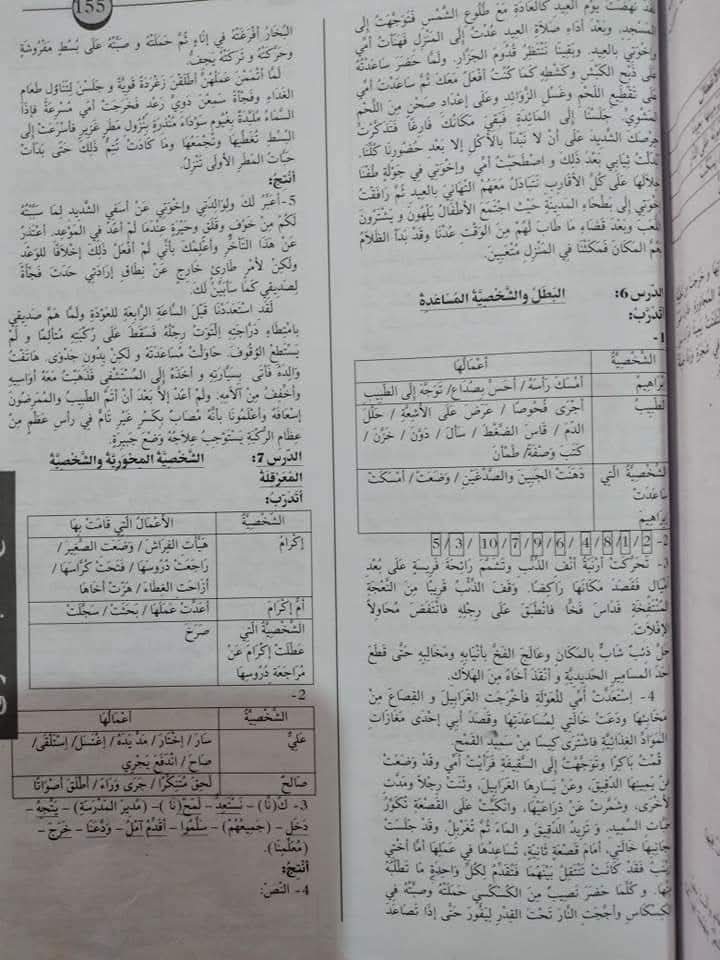 155
لقد نهضت يوم العيد كالعادة مع طلوع الشمس فتوجهت إلى
المسجد، وبعد أداء صلاة العيد عدت إلى المنزل فهنأت أمي
وإخوتي بالعيد. وبقينا ننتظر قدوم الجزار. ولما حضر ساعدته
على ذبح الكبش وكشطه كما كنت أفعل معك ثم ساعدت أمي
على تقطيع اللحم وغسل الزوائد وعلى إعداد صحن من اللحم
المشوي. جلسنا إلى المائدة فبقي مكانك فارغا فتذكرت
حرصك الشديد على أن لا نبدأ بالأكل إلا بعد حضورنا كلنا.
بدلت ثيابي بعد ذلك و اصطحبت أمي وإخوتي في جولة طفنا
خلالها على كل الأقارب نتبادل معهم التهاني بالعيد ثم رافقت
إخوتي إلى بطحاء المدينة حيث اجتمع الأطفال يلهون و يشترون
اللعب وبعد قضاء ما طاب لهم من الوقت عدنا وقد بدأ الظلام
يعم المكان فمكثنا في المنزل متعبين.
الدرس 6: البطل والشخصية المساعدة
أتدرب:
1-
الشخصية أعمالها
إبراهيم أمسك رأسه / أحس بصداع/ توجه إلى الطبيب
الطبيب أجرى فحوصا / عرض على الأشعة / حلل
الدم / قاس الضغط / سأل / دون / خزن /
كتب وصفة/ طمأن
الشخصية التي دهنت الجبين والصدغين / وضعت/ أمسكت
ساعدت
إبراهيم
2- 2 /1/ 8/ 4/ 6/ 9/ 7/ 10/ 3/ 5
3- تحركت أرنبة أنف الذئب وتشمم رائحة فريسة على بعد
أميال فقصد مكانها راكضا. وقف الذئب قريبا من النعجة
المنتفخة فداس فخا فانطبق على رجله فانتفض محاولا
الإفلات.
حل ذئب شاب بالمكان وعالج الفخ بأنيابه ومخالبه حتى قطع
أحد المسامير الحديدية و أنقذ أخاه من الهلاك.
4- استعدت أمي للعولة فأخرجت الغرابيل و القصاع من
مخابئها ودعت خالتي لمساعدتها وقصد أبي إحدى مغازات
المواد الغذائية فاشترى كيسا من سميد القمح
قمت باكرا وتوجهت إلى السقيفة فرأيت أمي وقد وضعت
عن يمينها الدقيق، وعن يسارها الغرابيل، وثنت رجلا ومدت
الأخرى، وشمرت عن ذراعيها. وانكبت على القصعة تكور
حبات السميد. و تزيد الدقيق و الماء ثم تغربل. وقد جلست
بجانبها خالتي، أمام قصعة ثانية، تساعدها في عملها أما أختي
زينب فقد كانت تتنقل بينهما فتقدم لكل واحدة ما تطلبه
منها. و كلما حضر نصيب من الكسكسي حملته وصبته في
الكسكاس وأججت النار تحت القدر ليفور حتى إذا تصاعد
البخار أفرغته في إناء ثم حملته و صبته على بسط مفروشة
وحركته و تركته يجف.
لما أتممن عملهن أطلقن زغردة قوية و جلسن لتناول طعام
الغداء وفجأة سمعن دوي رعد فخرجت أمي مسرعة فإذا
السماء ملبدة بغيوم سوداء منذرة بنزول مطر غزير فأسرعت إلى
البسط تغطيها وتجمعها وما كادت تتم ذلك حتى بدأت
حبات المطر الأولى تنزل.
أنتج:
5- أعبر لك ولوالدتي وإخوتي عن أسفي الشديد لما سببته
لكم من خوف وقلق وحيرة عندما لم أعد في الموعد. أعتذر
عن هذا التأخر وأعلمك بأني لم أفعل ذلك إخلافا للوعد
ولكن لأمر طارئ خارج عن نطاق إرادتي حدث فجأة
لصديقي كما سأبين لك.
لقد استعددنا قبل الساعة الرابعة للعودة ولما هم صديقي
بامتطاء دراجته التوت رجله فسقط على ركبته متألما و لم
يستطع الوقوف. حاولت مساعدته و لكن بدون جدوى. هاتفت
والده فأتى بسيارته و أخذه إلى المستشفى فذهبت معه أواسيه
وأخفف من آلامه. ولم أعد إلا بعد أن أتم الطبيب والممرضون
إسعافه وأعلمونا بأنه مصاب بكسر غير تام في رأس عظم من
عظام الركبة يستوجب علاجه وضع جبيرة.
الدرس 7: الشخصية المحورية والشخصية
المعرقلة
أتدرب:
الشخصية الأعمال التي قامت بها
إكرام هيأت الفراش / وضعت الصغير /
راجعت دروسها / فتحت كراسها /
أزاحت الغطاء / هزت أخاها
أم إكرام أعدت عملها / بحثت / سجلت
الشخصية التي صرخ
عطلت إكرام عن
مراجعة دروسها
2-
الشخصية أعمالها
علي سار / اختار / مد يده / اغتسل / استلقى /
صاح / اندفع يجري
صالح لحق متنكرا / جرى وراء / أطلق أصواتا
3- ك(نا) – نستعد – لمح(نا) – (مدير المدرسة) – يتجه –
دخل – (جميعهم) – سلموا – أقدم آمل – ودعنا – خرج –
(معلمنا).
أنتج:
4- النص: